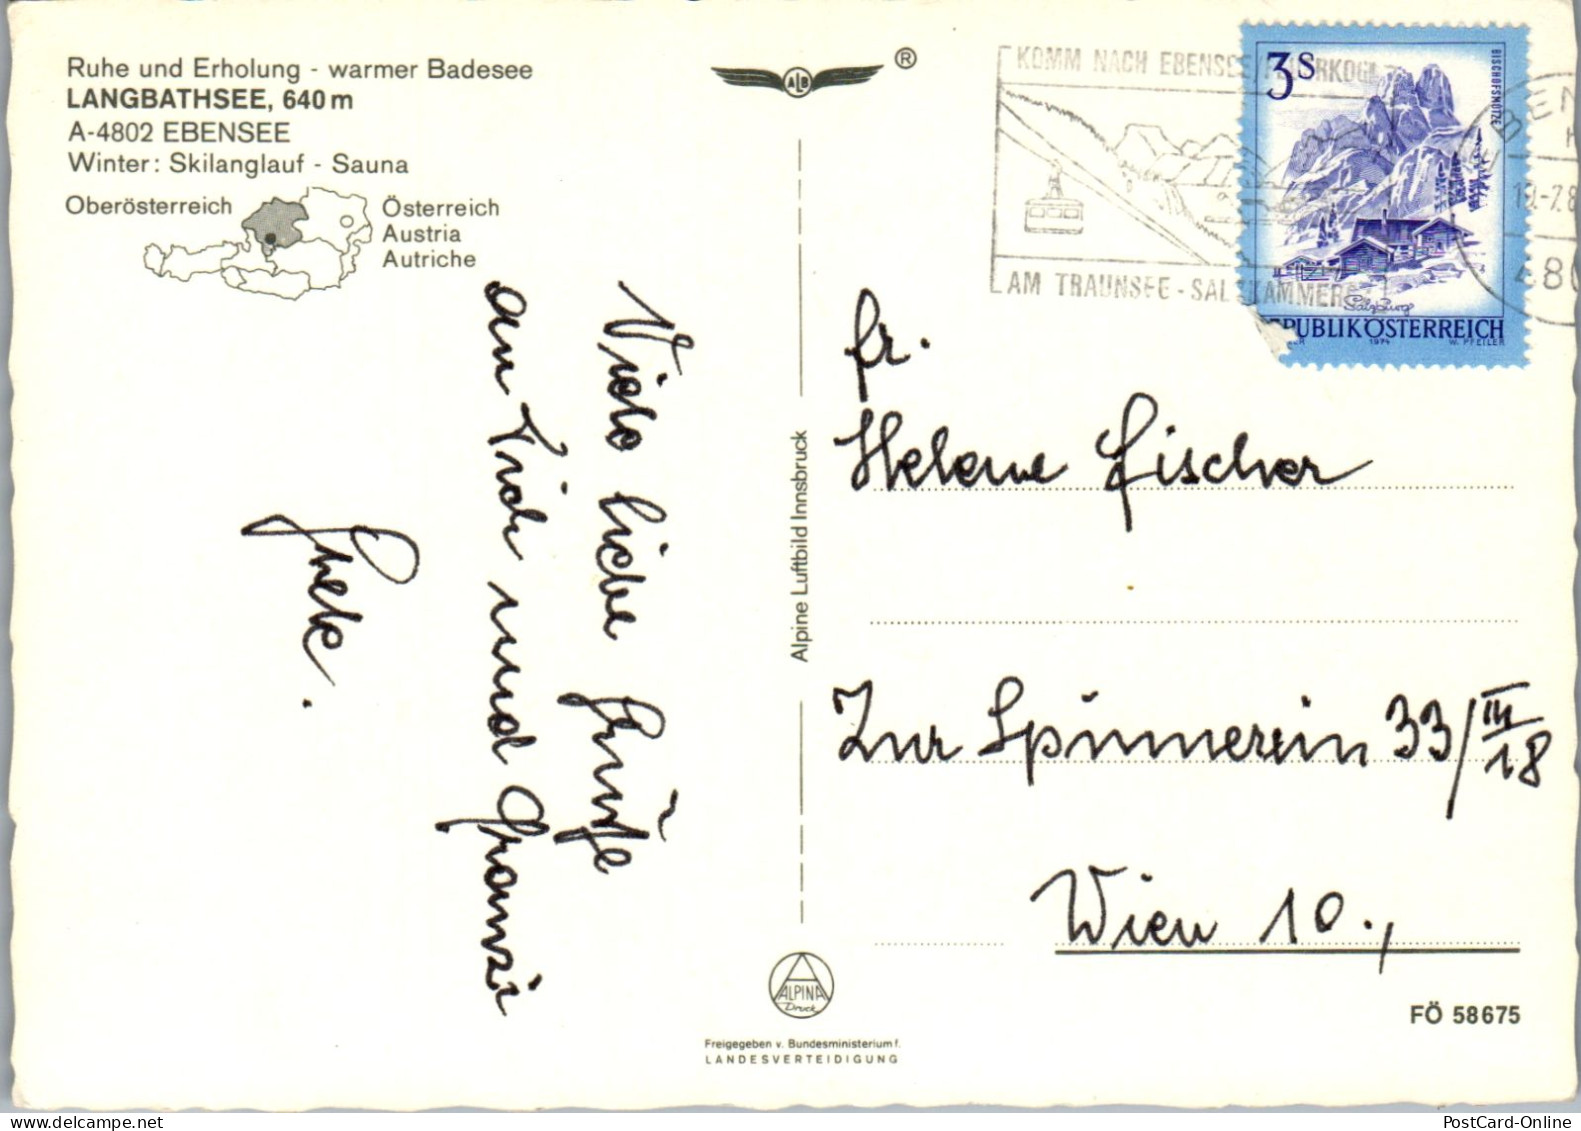 Ruhe und Erholung - warmer Badesee
LANGBATHSEE, 640 m
A-4802 EBENSEE
Winter: Skilanglauf - Sauna
Oberösterreich
Österreich
Austria
Autriche
ALB
®
KOMM NACH EBENSEE
AM TRAUNSEE - SALZKAMMER
3 S
BISCHOFSMÜTZE
Salzburg
REPUBLIK ÖSTERREICH
1974
W. PFEILER
19.-7.8
480
Viele liebe Grüße
an Dich und Franzi
Alpine Luftbild Innsbruck
Fr.
Helene Fischer
Zur Spinnerin 33/III/18
Wien 10.,
ALPINA
Druck
Freigegeben v. Bundesministerium f.
LANDESVERTEIDIGUNG
FÖ 58675
PostCard-Online